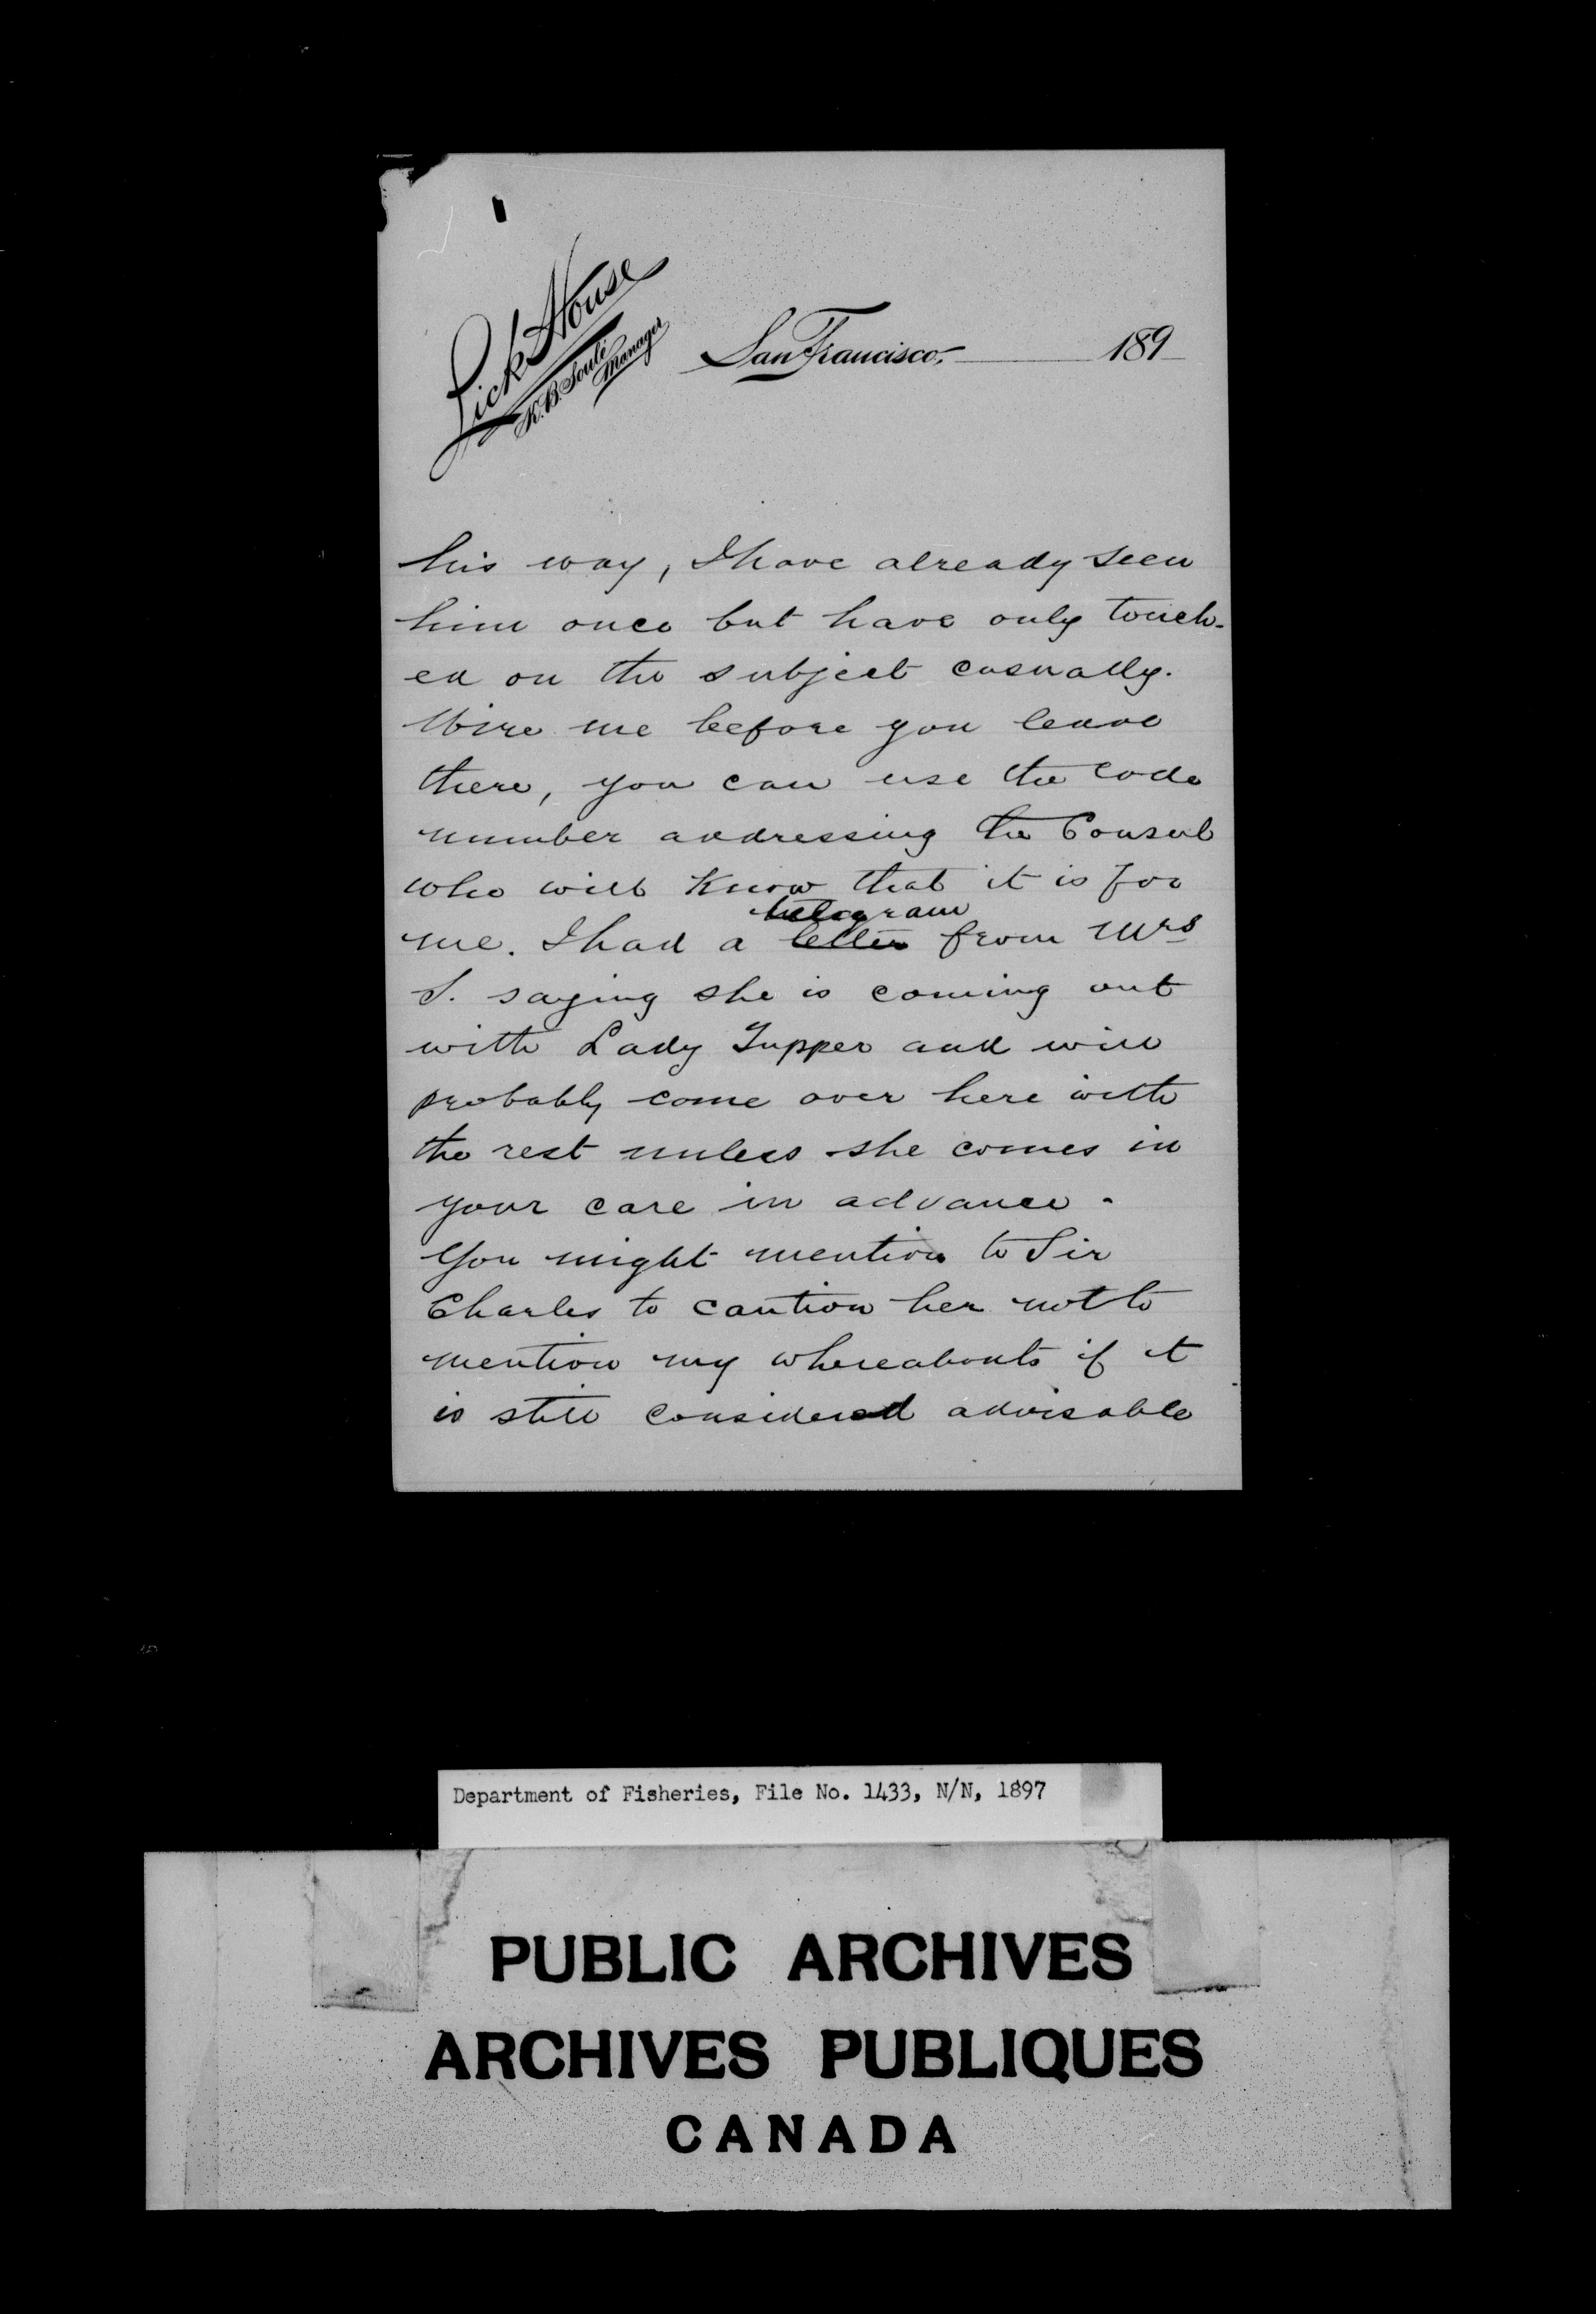 Lick House
K. B. Soulé
Manager
San Francisco, 189
his way, I have already seen
him once but have only touch-
ed on the subject casually.
Wire me before you leave
there, you can use the code
number addressing the Consul
who will know that it is for
telegram
me. I had a letter from Mrs
S. saying she is coming out
with Lady Tupper and will
probably come over here with
the rest unless she comes in
your care in advance.
You might mention to Sir
Charles to caution her not to
mention my whereabouts if it
is still considered advisable
Department of Fisheries, File No. 1433, N/N, 1897
PUBLIC ARCHIVES
ARCHIVES PUBLIQUES
CANADA